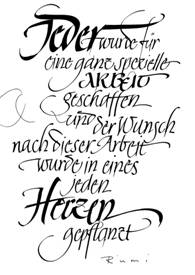 Jeder wurde für
eine ganz spezielle
ARBEIT
geschaffen
& und der Wunsch
nach dieser Arbeit
wurde in eines
jeden
Herzen
gepflanzt
Rumi